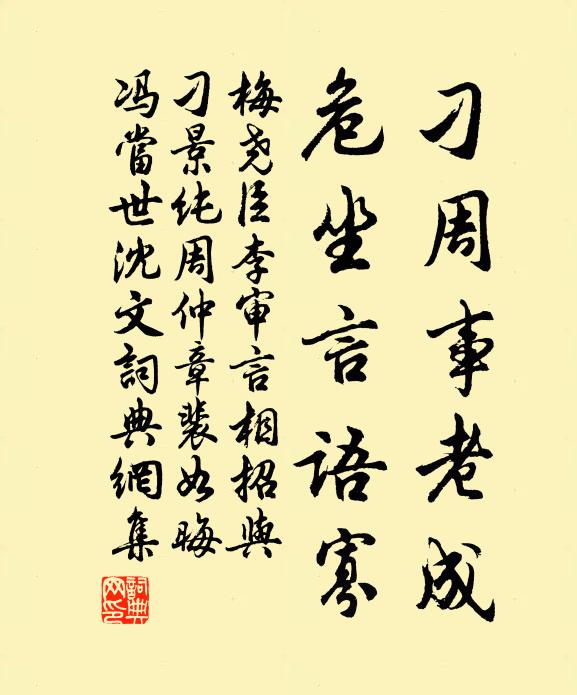 刁周事老成
危坐言語寡
梅尧臣李审言相招與
刁景纯周仲章裴如晦
冯當世沈文詞典網集
詞典网印